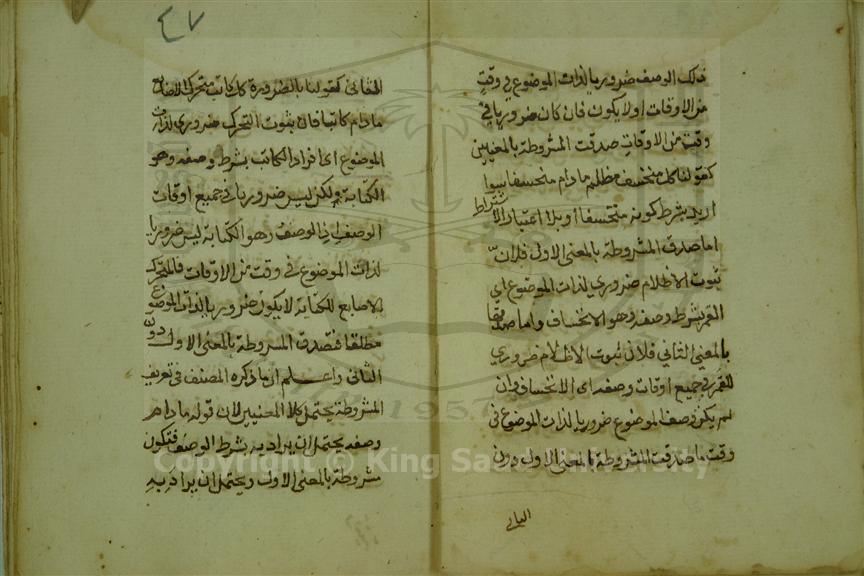 ذلك الوصف ضروريا لذات الموضوع في وقت
من الاوقات اولا يكون فان كان ضروريا في
وقت من الاوقات صدقت المشروطة بالمعنيين
كقولنا كل منخسف مظلم مادام منخسفا سوا
اريد بشرط كونه منخسفا او بلا اعتبار الاشتراط
اما صدق المشروطة بالمعنى الاول فلان
ثبوت الاظلام ضروري لذات الموضوع اي
القمر بشرط وصفه وهو الانخساف واما صدقها
بالمعني الثاني فلان ثبوت الاظلام ضروري
للقمر في جميع اوقات وصفه اى الانخساف وان
لم يكن وصف الموضوع ضروريا لذات الموضوع في
وقت ما صدقت المشروطة بالمعنى الاول دون
الثاني
٤٧
الثاني كقولنا بالضرورة كل كاتب متحرك الاصابع
مادام كاتبا فان ثبوت التحرك ضروري لذات
الموضوع اى افراد الكاتب بشرط وصفه وهو
الكتابة ولكن ليس ضروريا في جميع اوقات
الوصف اذ الوصف وهو الكتابة ليس ضروريا
لذات الموضوع في وقت من الاوقات فالمتحرك
الاصابع للكتابة لا يكون ضروريا لذات الموضوع
مطلقا فتصدق المشروطة بالمعنى الاول دون
الثاني واعلم ان ما ذكره المصنف في تعريف
المشروطة يحتمل كلا المعنيين لان قوله مادام
وصفه يحتمل ان يراد به بشرط الوصف فتكون
مشروطة بالمعنى الاول ويحتمل ان يراد به
1957
Copyright © King Saud University